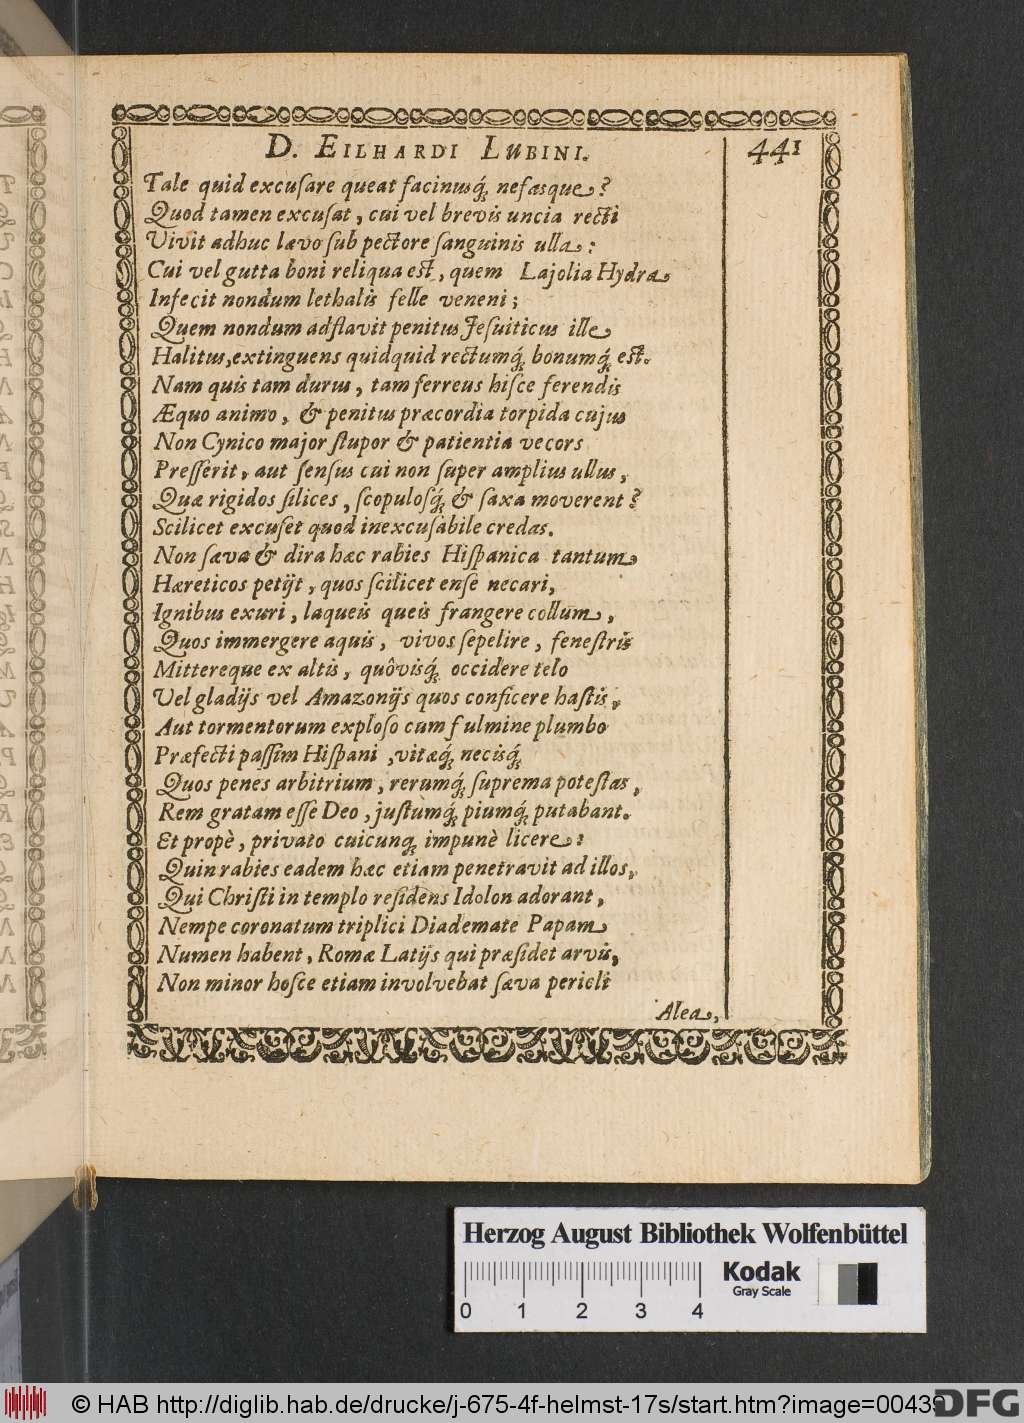 D. EILHARDI LUBINI. 441
Tale quid excuſare queat facinusq́; nefasque?
Quod tamen excuſat, cui vel brevis uncia recti
Vivit adhuc lævo ſub pectore ſanguinis ulla:
Cui vel gutta boni reliqua est, quem Lajolia Hydra
Infecit nondum lethalis felle veneni;
Quem nondum adflavit penitus Jeſuiticus ille
Halitus, extinguens quidquid rectumq́; bonumq́; est.
Nam quis tam durus, tam ferreus hiſce ferendis
Æquo animo, & penitus præcordia torpida cujus
Non Cynico major ſtupor & patientia vecors
Preſſerit, aut ſenſus cui non ſuper amplius ullus,
Quæ rigidos ſilices, ſcopuloſq́; & ſaxa moverent?
Scilicet excuſet quod inexcuſabile credas.
Non ſæva & dira hæc rabies Hiſpanica tantum
Hæreticos petijt, quos ſcilicet enſe necari,
Ignibus exuri, laqueis queis frangere collum,
Quos immergere aquis, vivos ſepelire, feneſtris
Mittereque ex altis, quôvisq́; occidere telo
Vel gladijs vel Amazonijs quos conficere haſtis,
Aut tormentorum exploſo cum fulmine plumbo
Præfecti paſſim Hiſpani, vitæq́; necisq́;
Quos penes arbitrium, rerumq́; ſuprema poteſtas,
Rem gratam eſſe Deo, juſtumq́; piumq́; putabant.
Et propè, privato cuicunq; impunè licere:
Quin rabies eadem hæc etiam penetravit ad illos,
Qui Chriſti in templo reſidens Idolon adorant,
Nempe coronatum triplici Diademate Papam
Numen habent, Romæ Latijs qui præſidet arvis,
Non minor hoſce etiam involvebat ſæva pericli
Alea,
Herzog August Bibliothek Wolfenbüttel
Kodak
Gray Scale
0 1 2 3 4
© HAB http://diglib.hab.de/drucke/j-675-4f-helmst-17s/start.htm?image=00439
DFG